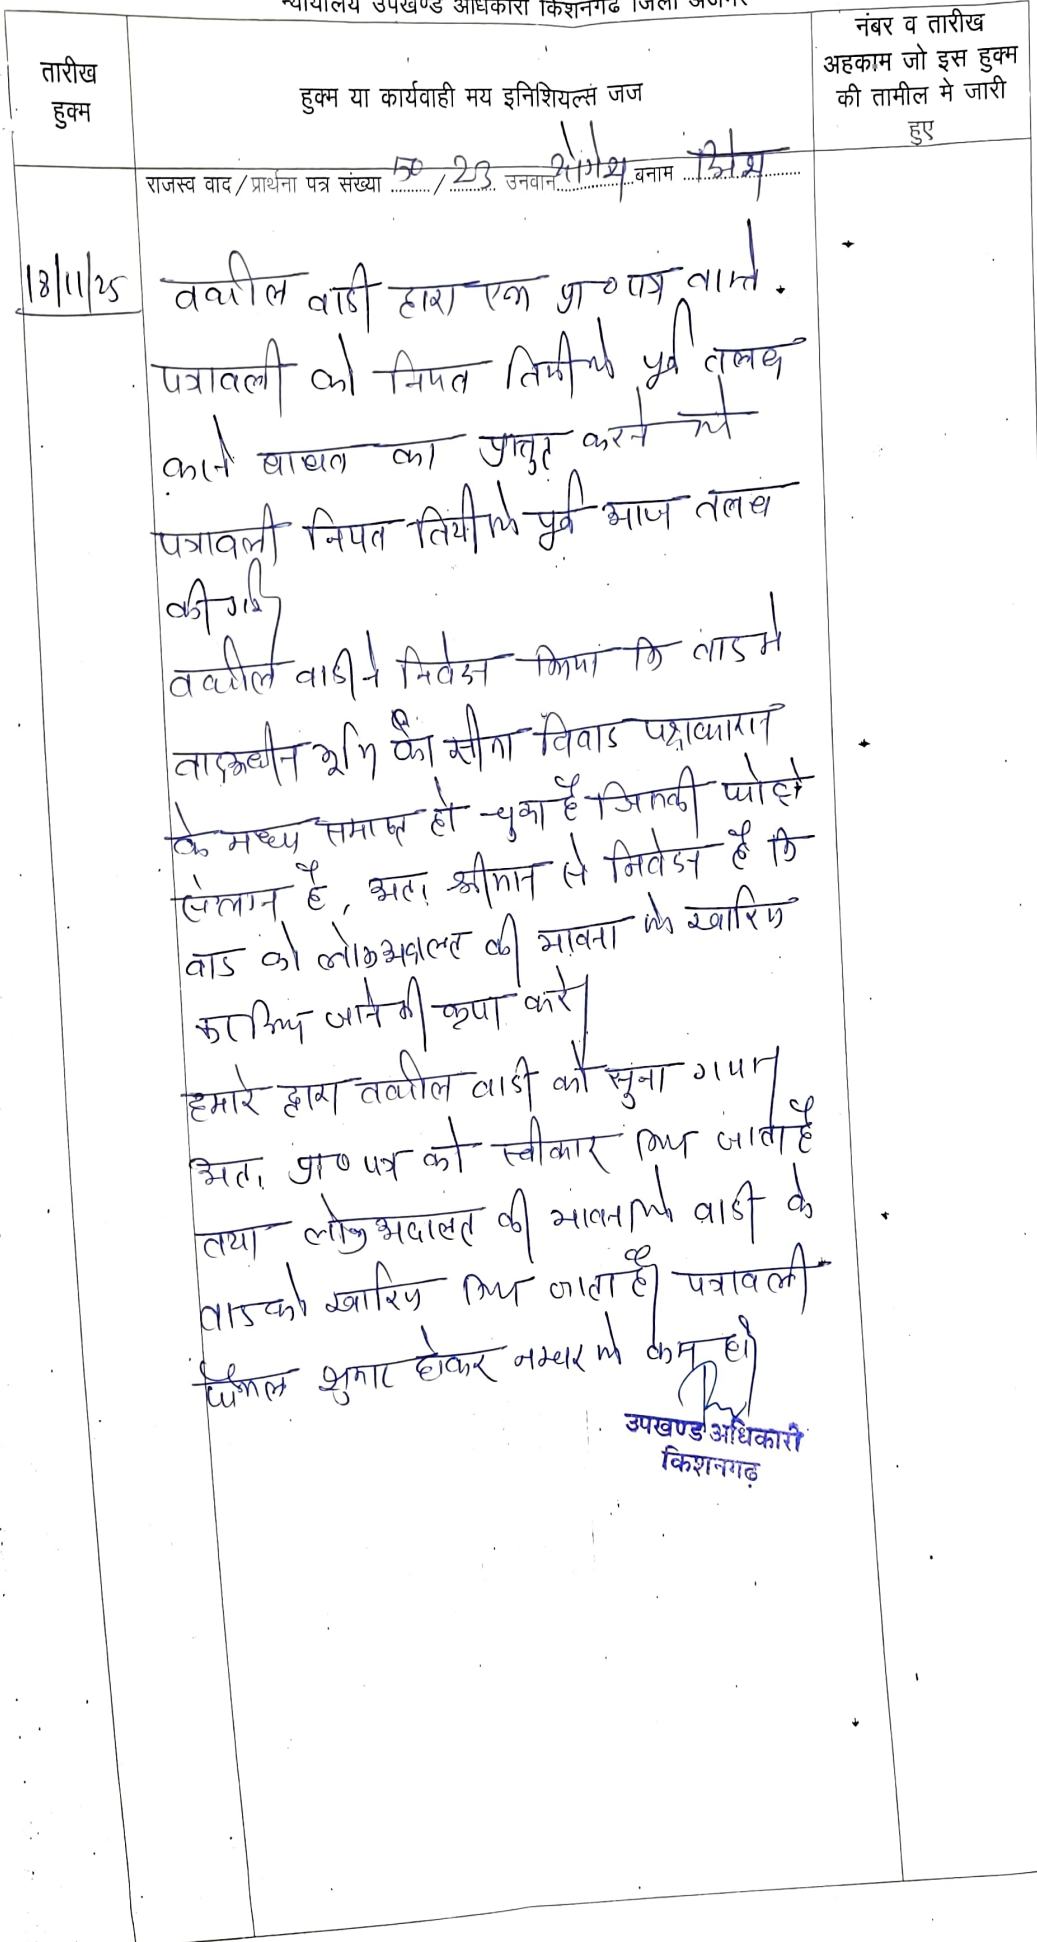 न्यायालय उपखण्ड अधिकारी किशनगढ जिला अजमेर
तारीख हुक्म
हुक्म या कार्यवाही मय इनिशियल्स जज
नंबर व तारीख
अहकाम जो इस हुक्म
की तामील मे जारी
हुए
राजस्व वाद/प्रार्थना पत्र संख्या 50/23 उनवान योगेश बनाम
18/11/25
वकील वादी द्वारा एक प्रा० पत्र वास्ते
पत्रावली को नियत तिथी से पूर्व तलब
करने बाबत का प्रस्तुत करने से
पत्रावली नियत तिथी से पूर्व आज तलब
की गई।
वकील वादी ने निवेदन किया कि वाद मे
वादअधीन भूमि का सीमा विवाद पक्षकारान
के मध्य समाप्त हो चुका है जिसकी फोटो
संलग्न है, अतः श्रीमान से निवेदन है कि
वाद को लोकअदालत की भावना से खारिज
किये जाने की कृपा करे।
हमारे द्वारा वकील वादी को सुना गया।
अतः प्रा० पत्र को स्वीकार किया जाता है
तथा लोकअदालत की भावना से वादी के
वाद को खारिज किया जाता है। पत्रावली
फैसल शुमार होकर नम्बर से कम हो।
उपखण्ड अधिकारी
किशनगढ़